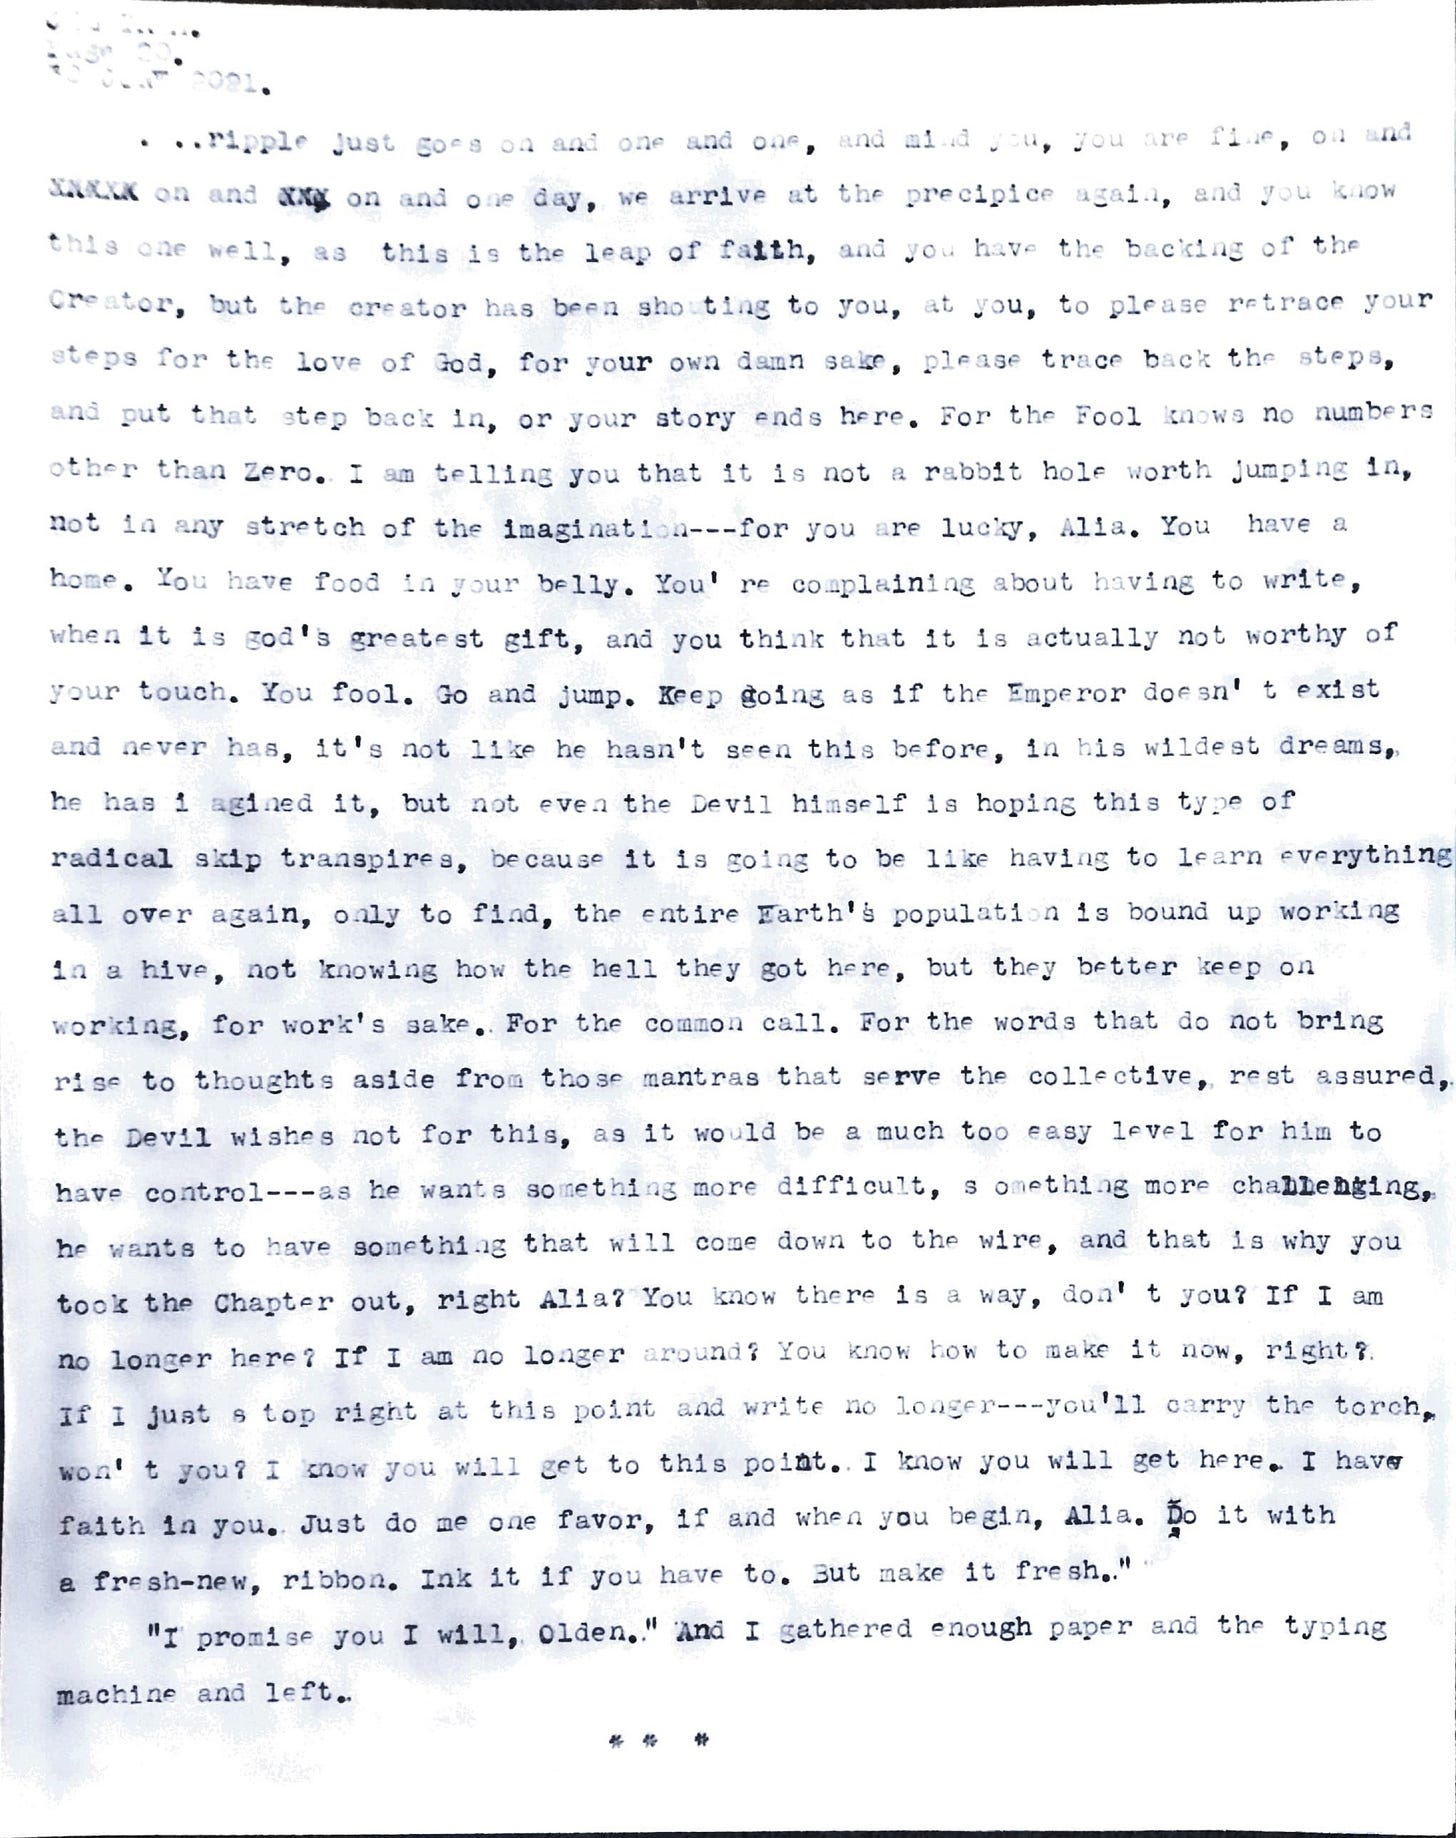 2021.
...ripple just goes on and one and one, and mind you, you are fine, on and
XXXXX on and XXX on and one day, we arrive at the precipice again, and you know
this one well, as this is the leap of faith, and you have the backing of the
Creator, but the creator has been shouting to you, at you, to please retrace your
steps for the love of God, for your own damn sake, please trace back the steps,
and put that step back in, or your story ends here. For the Fool knows no numbers
other than Zero. I am telling you that it is not a rabbit hole worth jumping in,
not in any stretch of the imagination---for you are lucky, Alia. You have a
home. You have food in your belly. You' re complaining about having to write,
when it is god's greatest gift, and you think that it is actually not worthy of
your touch. You fool. Go and jump. Keep going as if the Emperor doesn' t exist
and never has, it's not like he hasn't seen this before, in his wildest dreams,
he has i agined it, but not even the Devil himself is hoping this type of
radical skip transpires, because it is going to be like having to learn everything
all over again, only to find, the entire Earth's population is bound up working
in a hive, not knowing how the hell they got here, but they better keep on
working, for work's sake. For the common call. For the words that do not bring
rise to thoughts aside from those mantras that serve the collective, rest assured,
the Devil wishes not for this, as it would be a much too easy level for him to
have control---as he wants something more difficult, s omething more challenging,
he wants to have something that will come down to the wire, and that is why you
took the Chapter out, right Alia? You know there is a way, don' t you? If I am
no longer here? If I am no longer around? You know how to make it now, right?
If I just s top right at this point and write no longer---you'll carry the torch,
won' t you? I know you will get to this point. I know you will get here. I have
faith in you. Just do me one favor, if and when you begin, Alia. Do it with
a fresh-new, ribbon. Ink it if you have to. But make it fresh."
"I promise you I will, Olden." And I gathered enough paper and the typing
machine and left.
* * *